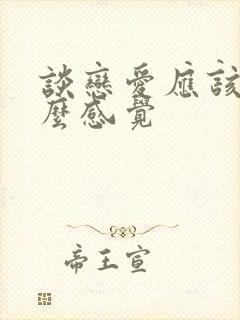 談戀愛應該
麼感覺
帝王宣